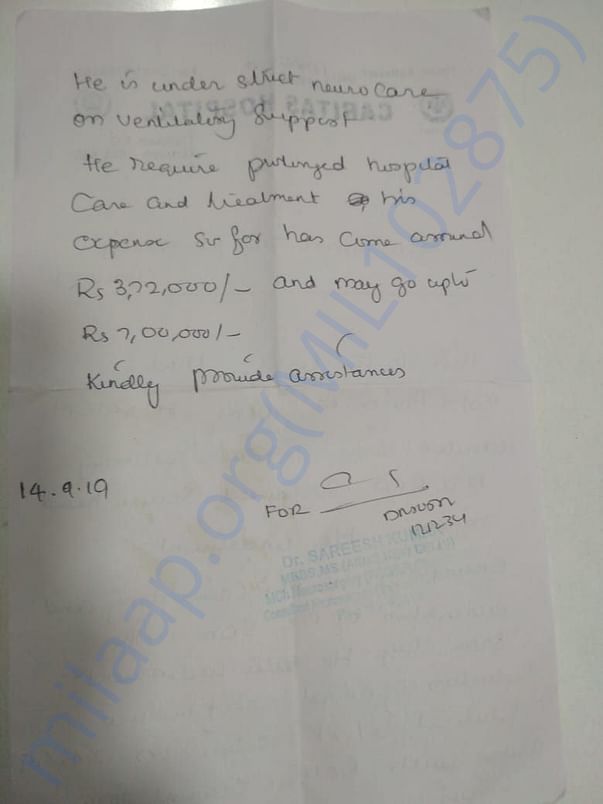 He is under strict neuro Care
on ventilatory Support
He require prolonged hospital
Care and treatment his
expense so for has come around
Rs 3,72,000/- and may go upto
Rs 7,00,000/-
Kindly provide assistances
14.9.19
FOR
121234
Dr. SAREESH KUMAR
MBBS, MS
MCh Neurosurgery
CARITAS HOSPITAL
milaap.org(MIL102875)